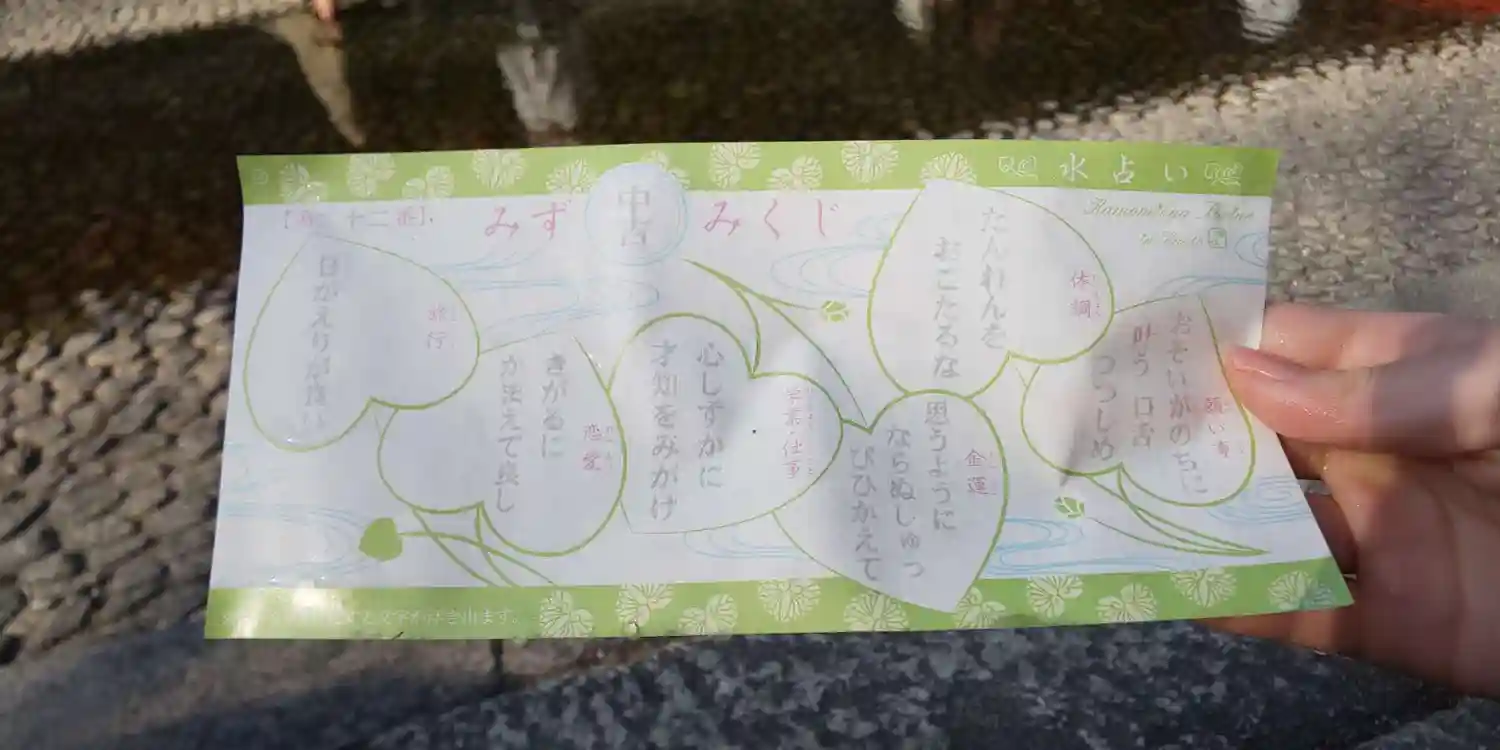 水占い
みずみくじ
中吉
体調
たんれんを
おこたるな
願い事
おそいがのちに
叶う 口舌
つつしめ
金運
思うように
ならぬしゅっ
ぴひかえて
学業・仕事
心しずかに
才知をみがけ
恋愛
きがるに
か法えて良し
旅行
日がえりが良い